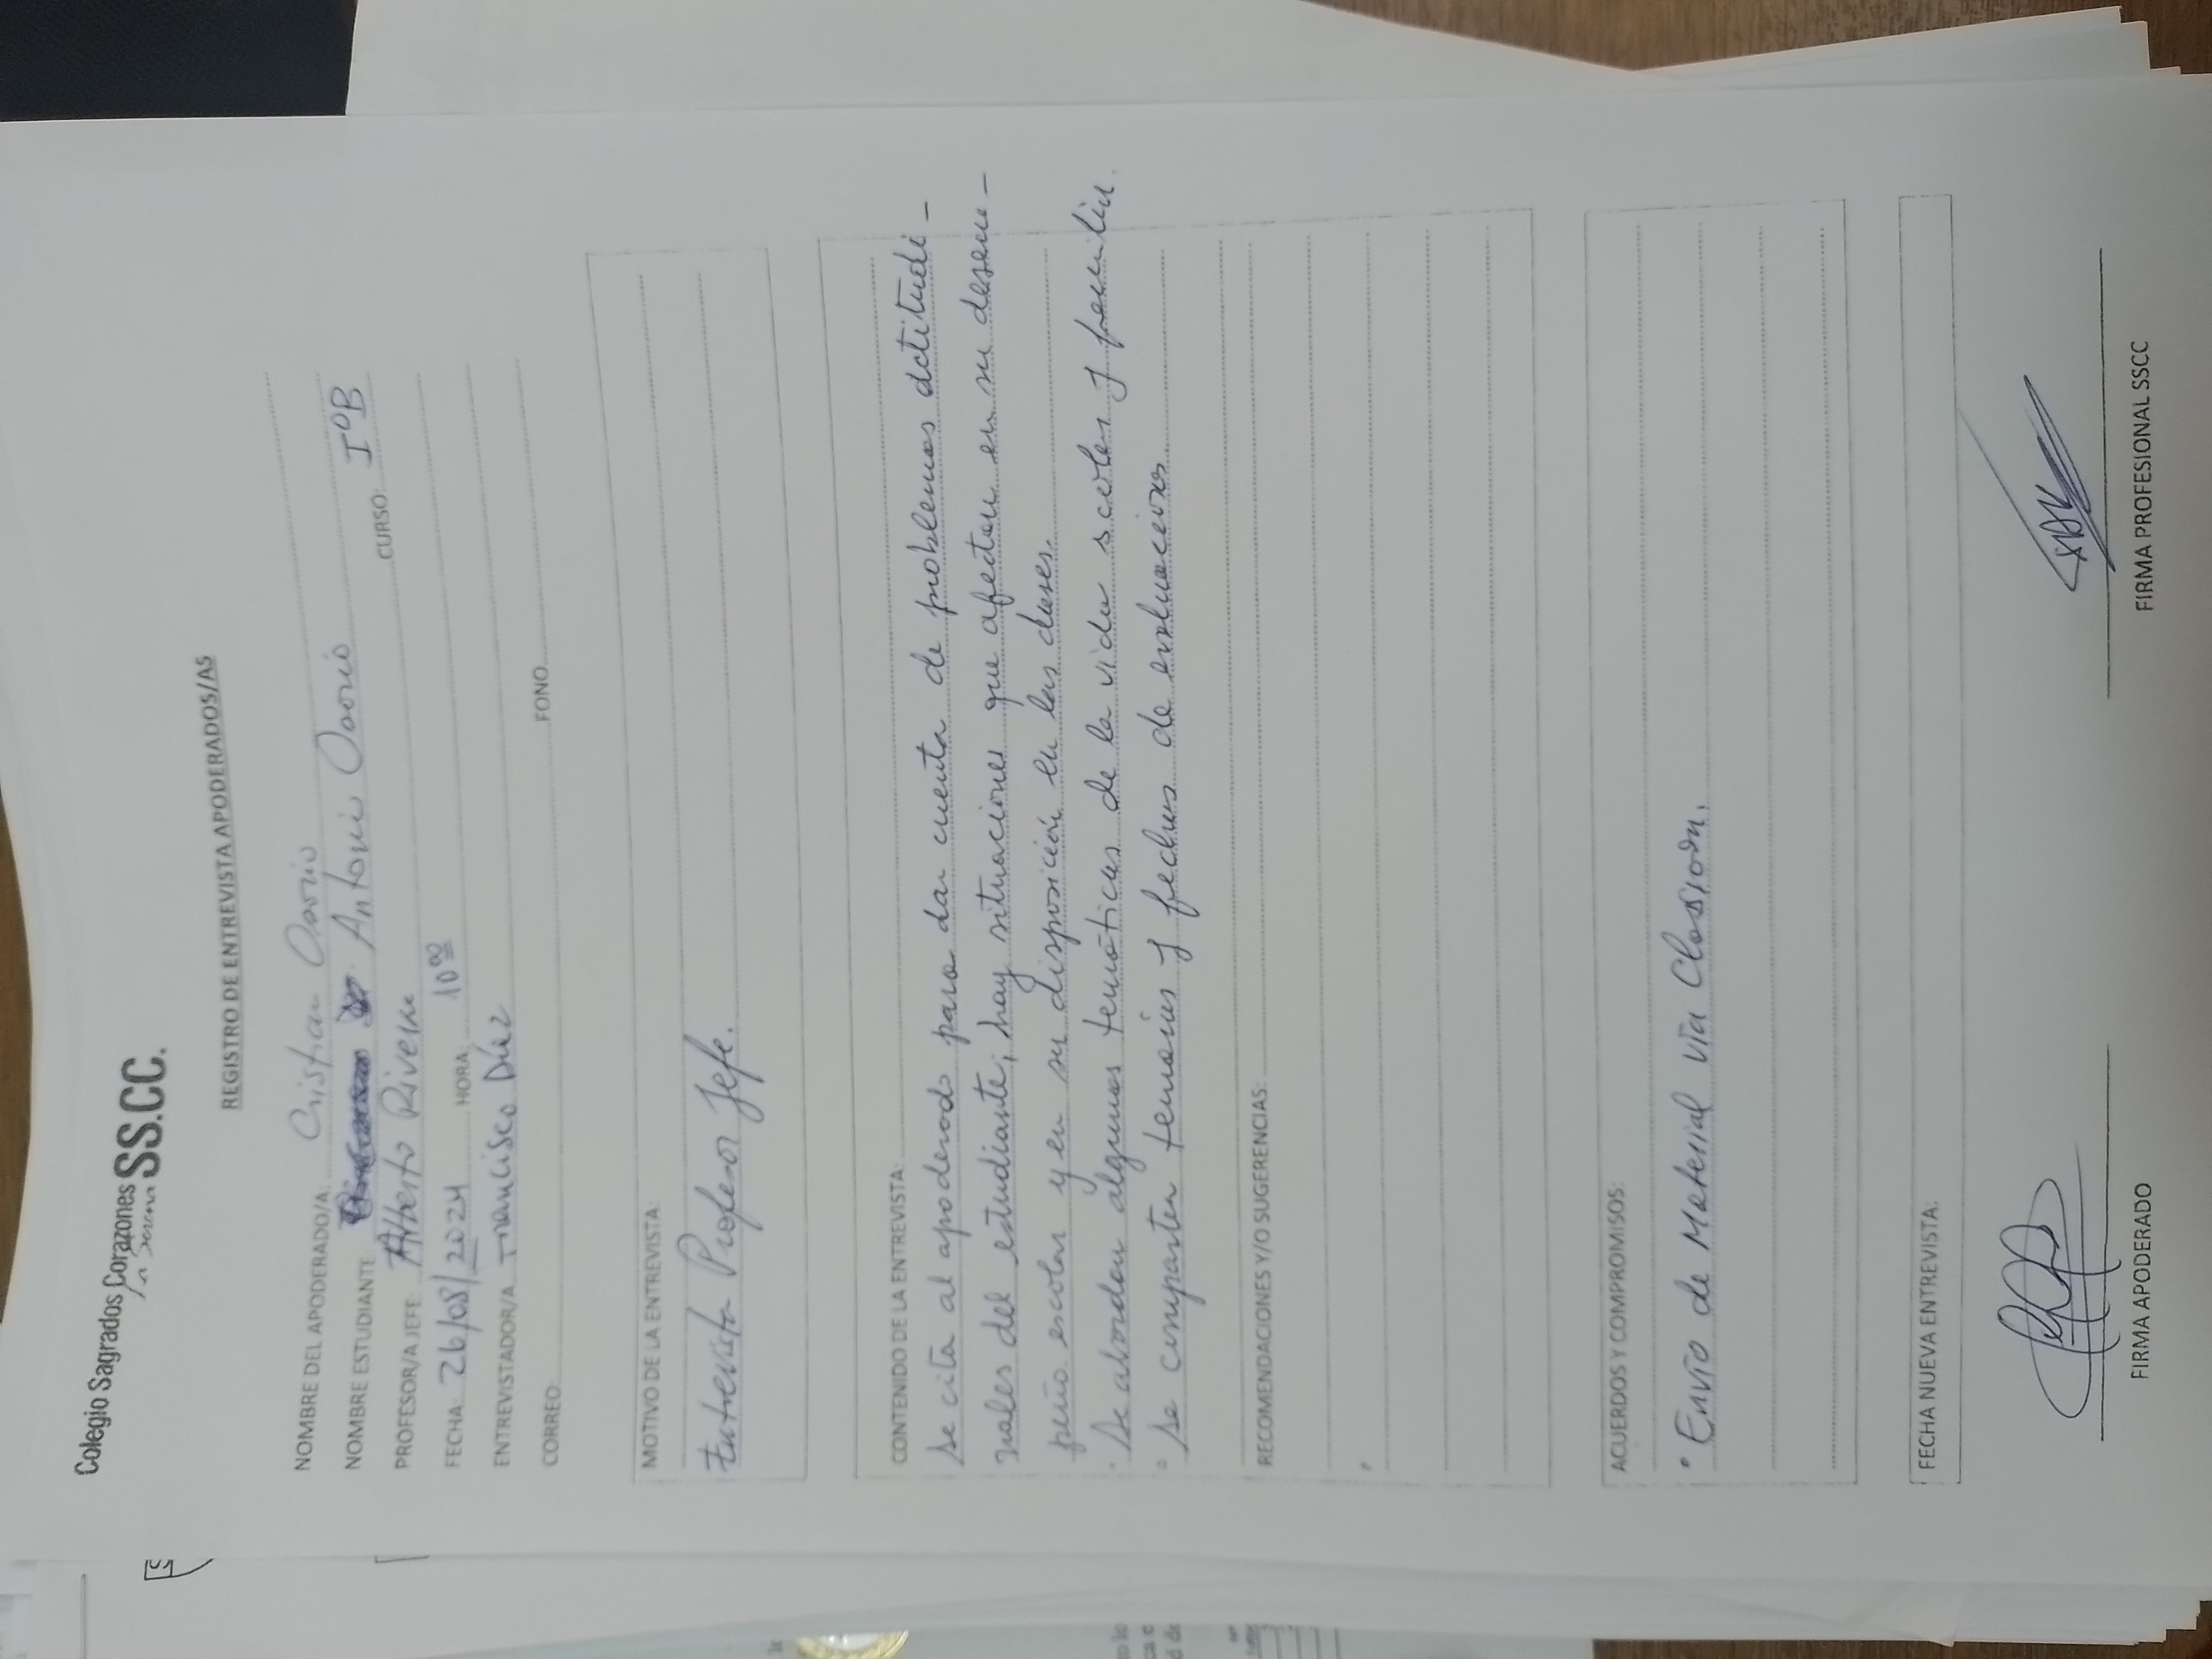 Colegio Sagrados Corazones
La Serena SS.CC.
REGISTRO DE ENTREVISTA APODERADOS/AS
NOMBRE DEL APODERADO/A: Cristian Osorio
NOMBRE ESTUDIANTE Antoni Osorio CURSO: I°B
PROFESOR/A JEFE: Alberto Rivera
FECHA: 26/08/2024 HORA: 10:00
ENTREVISTADOR/A Francisco Díaz
CORREO: FONO
MOTIVO DE LA ENTREVISTA:
Entrevista Profesor Jefe.
CONTENIDO DE LA ENTREVISTA:
se cita al apoderado para dar cuenta de problemas actitudi-
nales del estudiante, hay situaciones que afectan en su desem-
peño escolar y en su disposición en las clases.
· Se abordan algunas temáticas de la vida scolar y familiar.
· Se comparten temarios y fechas de evaluaciones
RECOMENDACIONES Y/O SUGERENCIAS:
ACUERDOS Y COMPROMISOS:
• Envío de Material vía Classroom.
FECHA NUEVA ENTREVISTA:
FIRMA APODERADO FIRMA PROFESIONAL SSCC